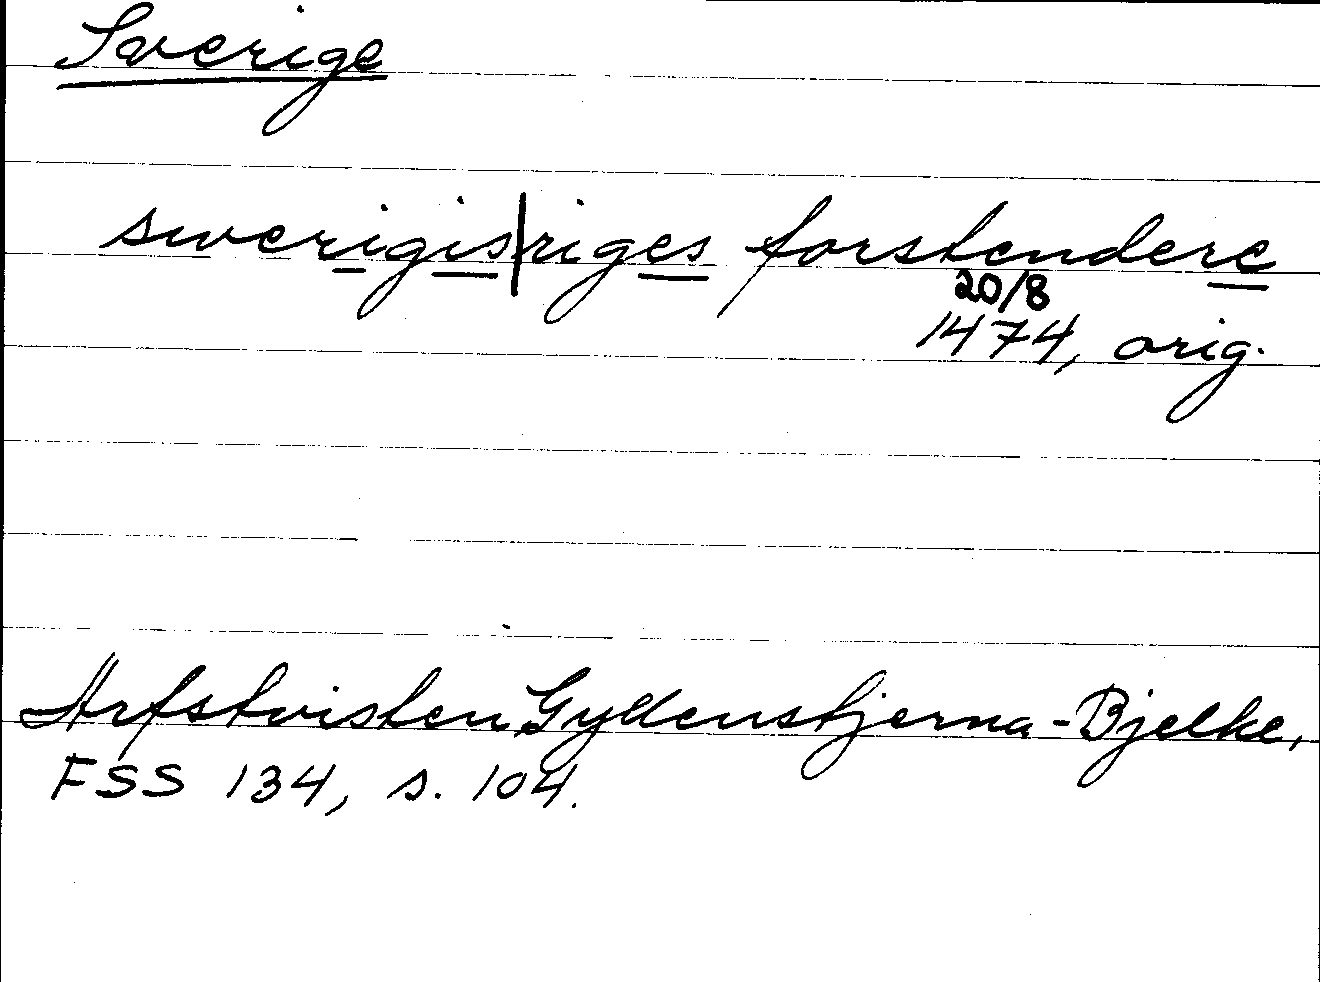 Sverige
swerigis|riges forstendere
20/8
1474, orig.
Arfstvisten Gyldenstjerna-Bjelke,
FSS 134, s. 104.